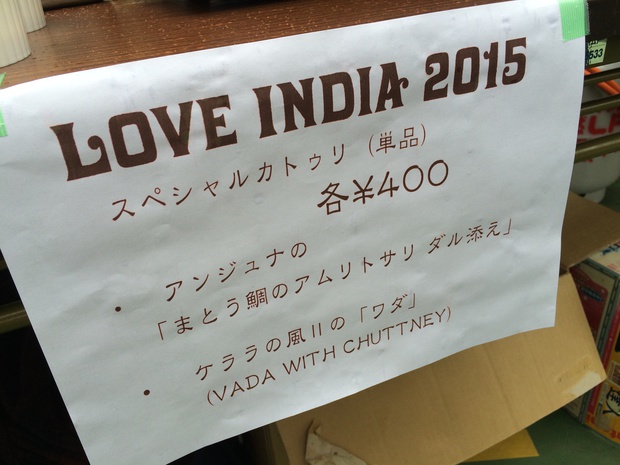 LOVE INDIA 2015
スペシャルカトゥリ (単品)
各¥400
• アンジュナの
「まとう鯛のアムリトサリ ダル添え」
• ケララの風IIの「ワダ」
(VADA WITH CHUTTNEY)
533